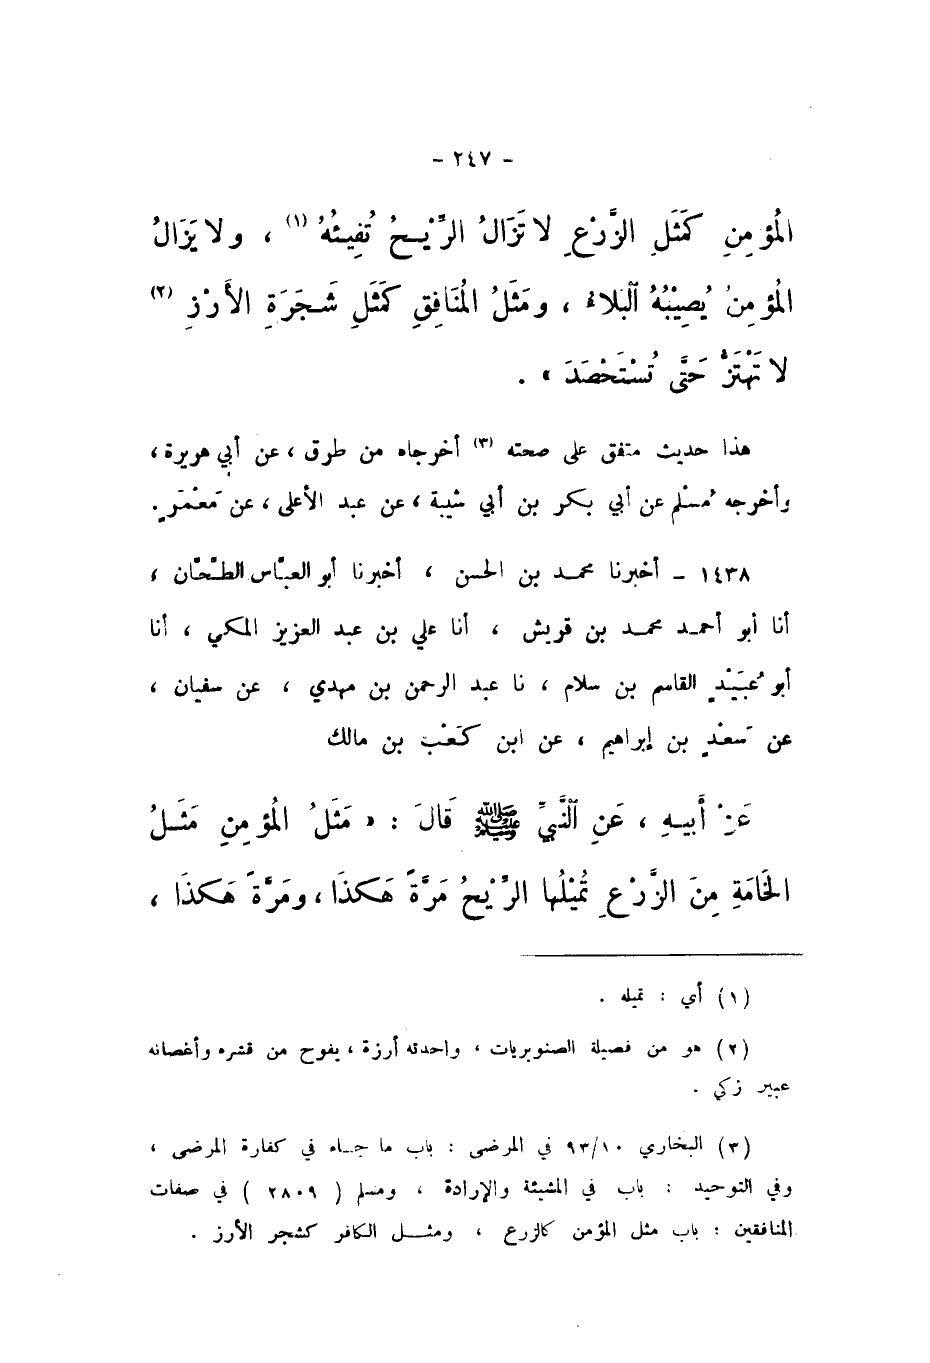 - ٢٤٧ -
المُؤمِنِ كَمَثَلِ الزَّرْعِ لا تَزَالُ الرِّيْحُ تُفِيئُهُ (١) ، ولا يَزَالُ
المُؤمِنُ يُصِيْبُهُ ٱلْبَلاءُ ، ومَثَلُ المُنَافِقِ كَمَثَلِ شَجَرَةِ الأَرْزِ (٢)
لا تَهْتَزُّ حَتَّى تُسْتَحْصَدَ » .
هذا حديث متفق على صحته (٣) أخرجاه من طرق ، عن أبي هريرة ،
وأخرجه مُسْلم عن أبي بكر بن أبي شيبة ، عن عبد الأعلى ، عن مَعْمَرٍ .
١٤٣٨ - أخبرنا محمد بن الحسن ، أخبرنا أبو العبَّاس الطَّحَّان ،
أنا أبو أحمد محمد بن قريش ، أنا علي بن عبد العزيز المكي ، أنا
أبو عُبَيْدٍ القاسم بن سلام ، نا عبد الرحمن بن مهدي ، عن سفيان ،
عن سَعْدٍ بن إبراهيم ، عن ابن كَعْب بن مالك
عَنْ أَبيهِ ، عَنِ ٱلنَّبيِّ ﷺ قَالَ : « مَثَلُ المُؤمِنِ مَثَلُ
الخَامَةِ مِنَ الزَّرْعِ تُمِيْلُها الرِّيْحُ مَرَّةً هَكذَا ، ومَرَّةً هَكذَا ،
(١) أي : تميله .
(٢) هو من فصيلة الصنوبريات ، واحدته أرزة ، يفوح من قشره وأغصانه
عبير زكي .
(٣) البخاري ٩٣/١٠ في المرضى : باب ما جاء في كفارة المرضى ،
وفي التوحيد : باب في المشيئة والإرادة ، ومسلم ( ٢٨٠٩ ) في صفات
المنافقين : باب مثل المؤمن كالزرع ، ومثل الكافر كشجر الأرز .